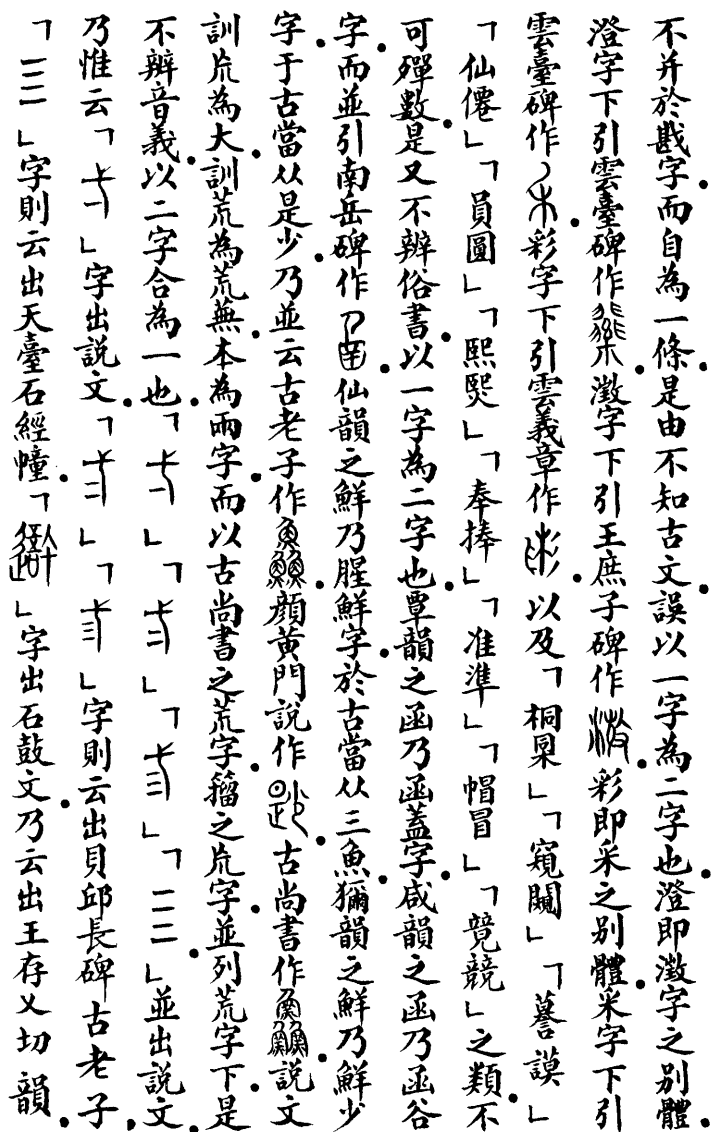 不并於戡字而自為一條是由不知古文誤以一字為二字也澄即澂字之別體
澄字下引雲臺碑作澂字下引王庶子碑作彩即采之別體采字下引
雲臺碑作彩字下引雲義章作以及「桐㮯」「窺闚」「謩謨」
「仙僊」「員圓」「熙煕」「奉捧」「准準」「帽冒」「竸競」之類不
可殫數是又不辨俗書以一字為二字也覃韻之函乃函蓋字咸韻之函乃函谷
字而並引南岳碑作仙韻之鮮乃腥鮮字於古當从三魚獮韻之鮮乃鮮少
字于古當从是少乃並云古老子作顏黃門說作古尚書作說文
訓㠩為大訓荒為荒蕪本為兩字而以古尚書之荒字籀之㠩字並列荒字下是
不辨音義以二字合為一也「」「」「」「一二三」並出說文
乃惟云「」字出說文「」「」字則云出貝邱長碑古老子
「」字則云出天臺石經幢「」字出石鼓文乃云出王存乂切韻